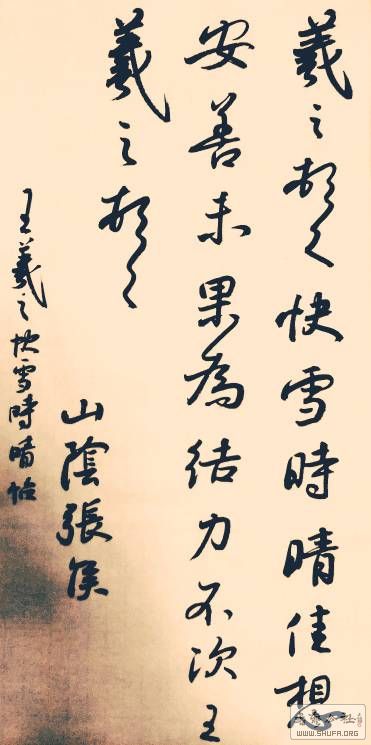 羲之頓首快雪時晴佳想
安善未果為結力不次王
羲之頓首
山陰張侯
王羲之快雪時晴帖
WWW.SHUFA.ORG